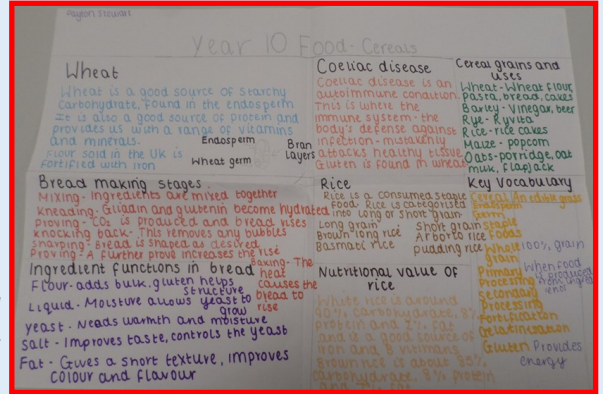 Year 10 Food - Cereals
Wheat
Wheat is a good source of starchy
carbohydrate. Found in the endosperm
It is also a good source of protein and
provides us with a range of vitamins
and minerals.
Flour sold in the UK is
fortified with iron
Endosperm
Wheat germ
Bran
Layers
Coeliac disease
Coeliac disease is an
autoimmune condition.
This is where the
immune system - the
body's defense against
infection - mistakenly
attacks healthy tissue.
Gluten is found in wheat
Cereal grains and
uses
Wheat - Wheat flour,
pasta, bread, cakes
Barley - Vinegar, beer
Rye - Ryvita
Rice - rice cakes
Maize - popcorn
Oats - porridge, oat
milk, flapjack
Bread making stages
Mixing - Ingredients are mixed together
kneading - Gliadin and glutenin become hydrated
Proving - CO2 is produced and bread rises
knocking back - This removes any bubbles
sharping - Bread is shaped as desired
Proving - A further prove increases the rise
Baking - The
heat
causes the
bread to
rise
Ingredient functions in bread
Flour - adds bulk, gluten helps
structure
Liquid - Moisture allows yeast to
grow
yeast - Needs warmth and moisture
Salt - Improves taste, controls the yeast
Fat - Gives a short texture, improves
colour and flavour
Rice
Rice is a consumed staple
food. Rice is categorised
into long or short grain
Long grain
Brown long rice
Basmatic rice
Short grain
Arborio rice
pudding rice
Nutritional value of
rice
White rice is around
90% carbohydrate, 8%
protein and 2% fat
and is a good source of
iron and B vitamins
Brown rice is about 85%
carbohydrate, 8% protein
Key Vocabulary
Cereal An edible grass
Endosperm
Germ
staple
Foods
Whole
grain
100% grain
Primary
Processing
When food
is produced
secondary
Processing
Fortification
Gelatinisation
Gluten Provides
energy